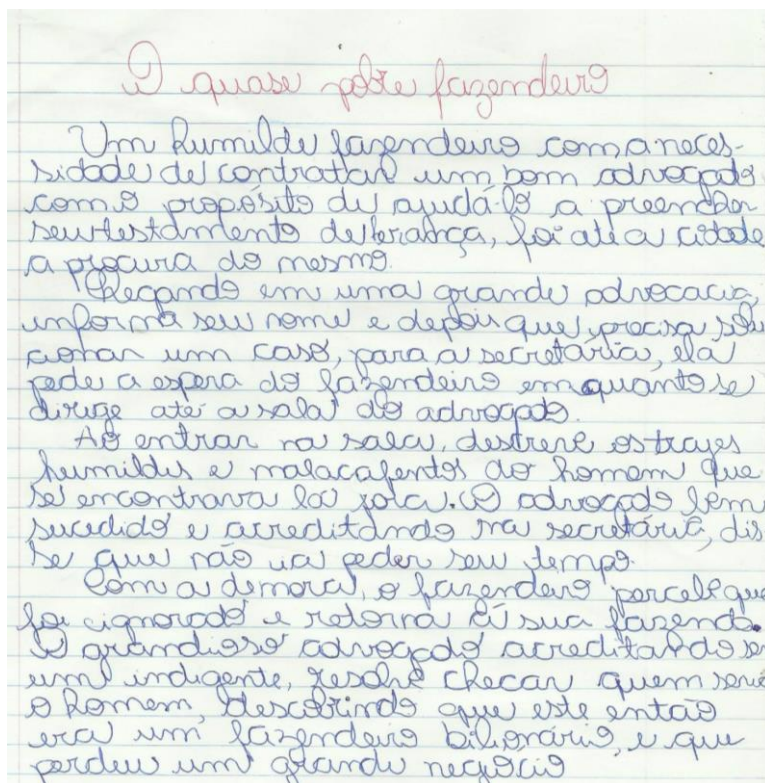 O quase pobre fazendeiro
Um humilde fazendeiro com a neces-
sidade de contratar um bom advogado
com o propósito de ajudá-lo a preencher
seu testamento de herança, foi até a cidade
a procura do mesmo.
Chegando em uma grande advocacia,
informa seu nome e depois que precisa solu
cionar um caso, para a secretária, ela
pede a espera do fazendeiro em quanto se
dirige até a sala do advogado.
Ao entrar na sala, descreve os trajes
humildes e malacafentos do homem que
se encontrava lá fora. O advogado bem
sucedido e acreditando na secretária, dis
se que não ia peder seu tempo.
Com a demora, o fazendeiro percebe que
foi ignorado e retorna à sua fazenda.
O grandioso advogado acreditando ser
um indigente, resolve checar quem seria
o homem, descobrindo que este então
era um fazendeiro bilionário, e que
perdeu um grande negócio